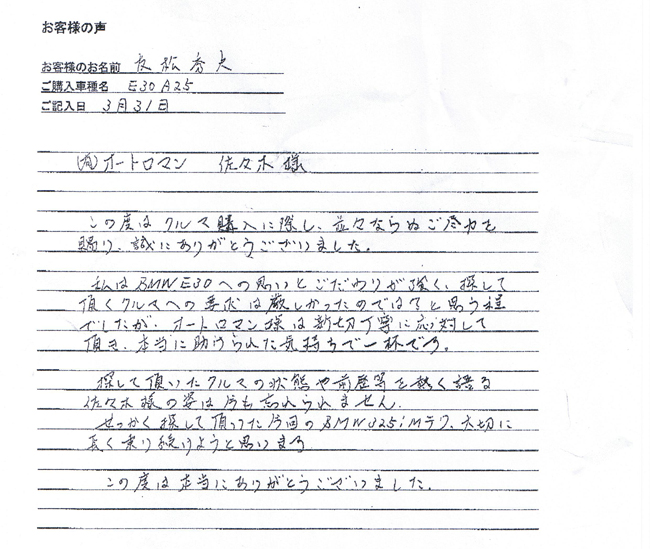 お客様の声
お客様のお名前 友松秀夫
ご購入車種名 E30A25
ご記入日 3月31日
(有)オートロマン 佐々木様
この度はクルマ購入に際し、並々ならぬご尽力を
賜り、誠にありがとうございました。
私はBMWE30への思いとこだわりが強く、探して
頂くクルマへの要求は厳しかったのでは?と思う程
でしたが、オートロマン様は親切丁寧に応対して
頂き、本当に助けられた気持ちで一杯です。
探して頂いたクルマの状態や前歴等を熱く語る
佐々木様の姿は今も忘れられません。
せっかく探して頂いた今回のBMW325iMテク、大切に
長く乗り続けようと思います
この度は本当にありがとうございました。